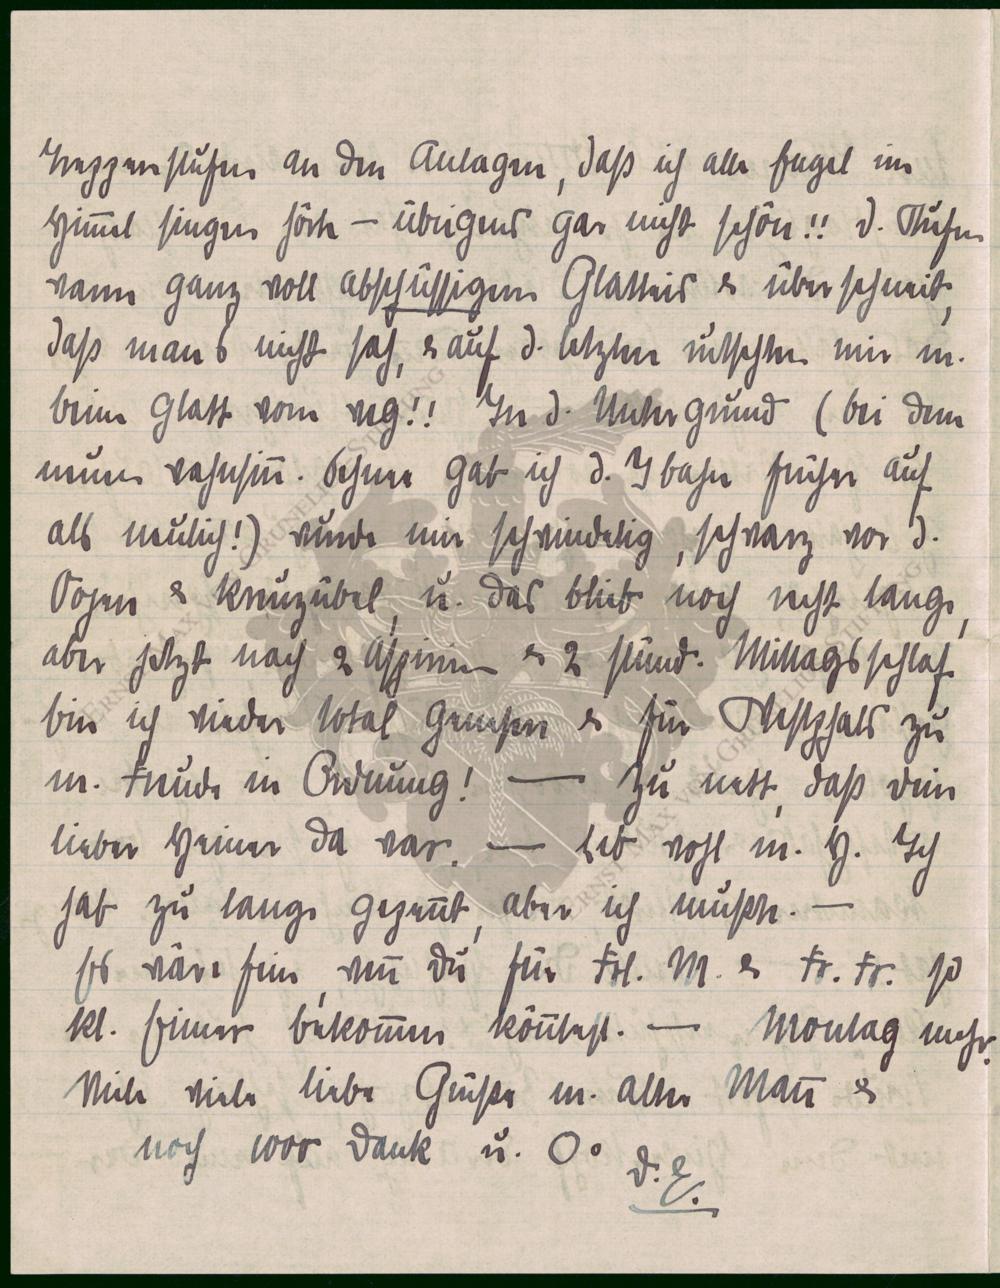 Treppenstufen an den Anlagen, daß ich alle Engel im
Him̄el singen hörte – übrigens gar nicht schön!! d. Stufen
waren ganz voll abschüssigem Glatteis & überschneit,
daß man's nicht sah, & auf d. letzten rutschten mir m.
beine glatt vom weg!! In d. Untergrund (bei dem
neuen wahnsin̄. Schnee gab ich d. Ibahn früher auf
als neulich!) wurde mir schwindelig, schwarz vor d.
Oogen & kreuzübel, u. das blieb noch recht lange,
aber jetzt nach 2 Aspirin & 2 stünd. Mittagsschlaf
bin ich wieder total genesen & für Westphals zu
m. Freude in Ordnung! — Zu nett, daß dein
lieber Heiner da war. — Leb wohl m. H. Ich
hab zu lange gepen̄t, aber ich mußte. —
Es wäre fein, wen̄ du für Frl. M. & Fr. Fr. so
kl. Eimer bekom̄en kön̄test. — Montag mehr.
Viele viele liebe Grüße m. alter Man̄ &
noch 1000 Dank u. O°
d. E.
ERNST MAX VON GRUNELIUS-STIFTUNG
ERNST MAX VON GRUNELIUS-STIFTUNG